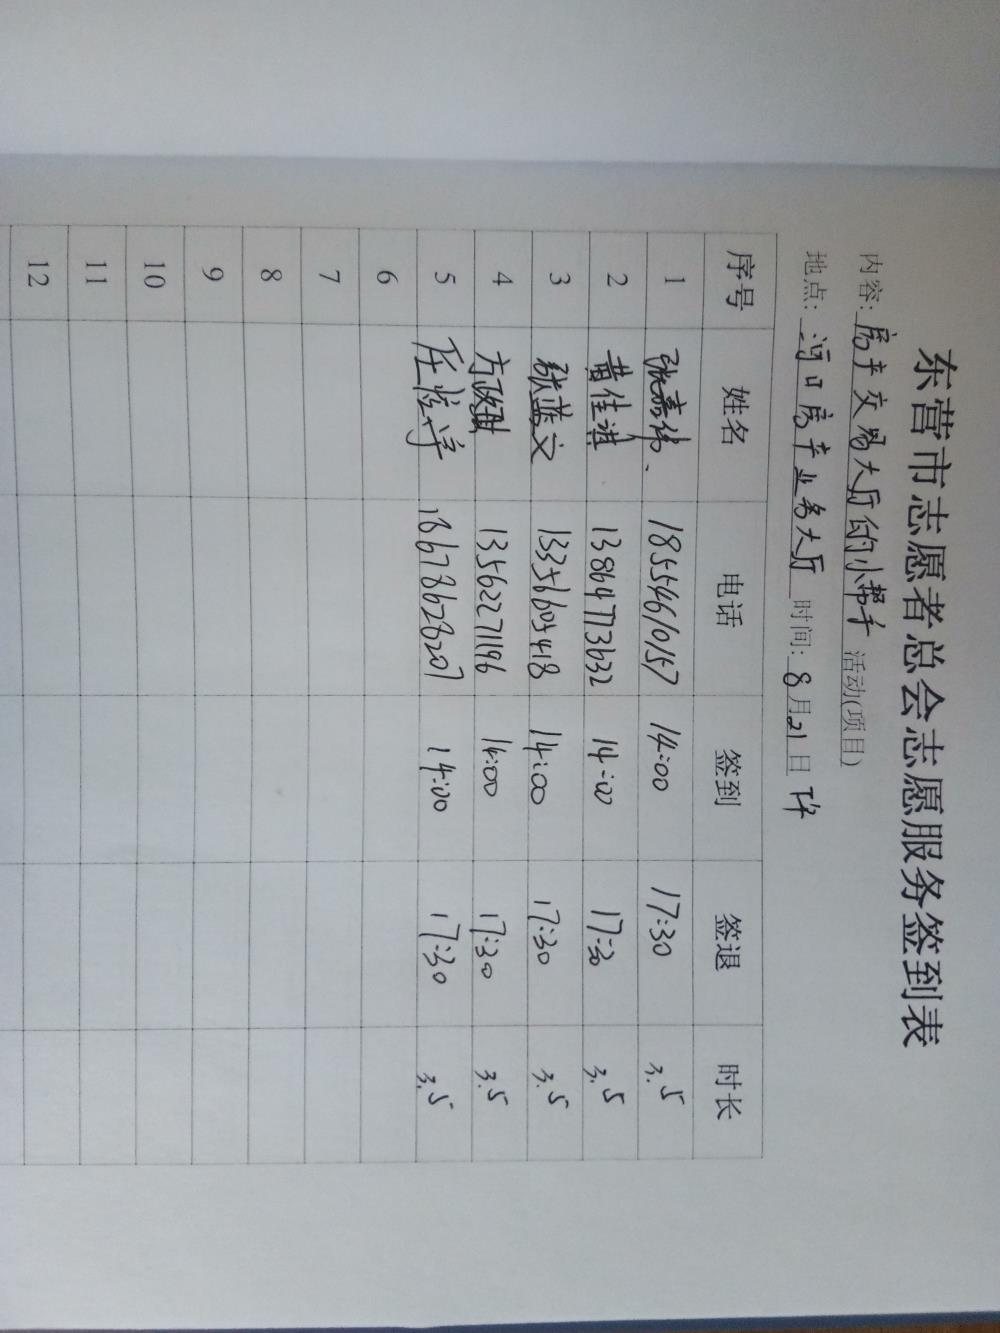 东营市志愿者总会志愿服务签到表
内容: 房产交易大厅的小帮手 活动(项目)
地点: 河口房产业务大厅 时间: 8月21日 下午
序号 姓名 电话 签到 签退 时长
1 张嘉伟 18554610157 14:00 17:30 3.5
2 黄佳淇 13864773632 14:00 17:30 3.5
3 张蓝文 13356605418 14:00 17:30 3.5
4 方政琪 13562271196 14:00 17:30 3.5
5 18678628207 14:00 17:30 3.5
6
7
8
9
10
11
12